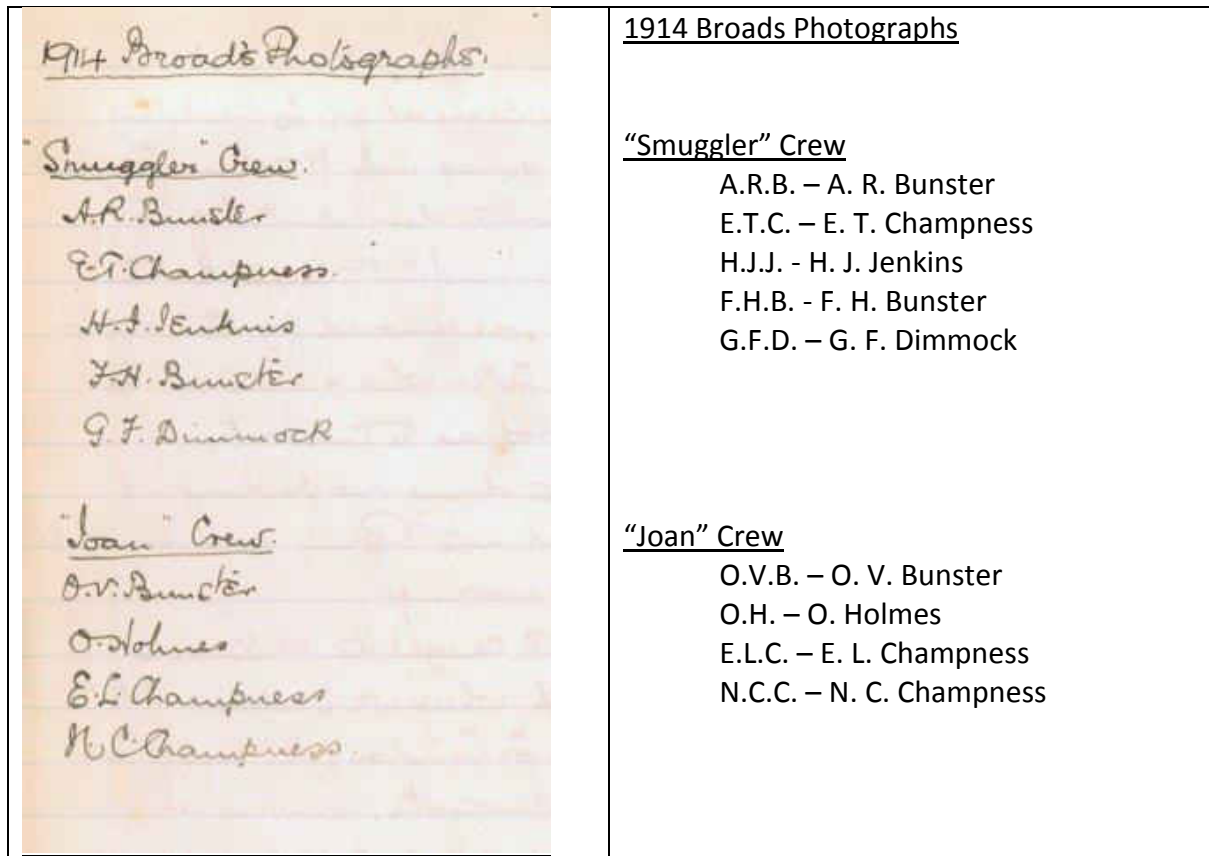 1914 Broads Photographs.
"Smuggler" Crew.
A.R. Bunster
E.T. Champness.
H.J. Jenkins
F.H. Bunster
G.F. Dimmock
"Joan" Crew.
O.V. Bunster
O. Holmes
E.L Champness
N.C. Champness.
1914 Broads Photographs
“Smuggler” Crew
A.R.B. – A. R. Bunster
E.T.C. – E. T. Champness
H.J.J. - H. J. Jenkins
F.H.B. - F. H. Bunster
G.F.D. – G. F. Dimmock
“Joan” Crew
O.V.B. – O. V. Bunster
O.H. – O. Holmes
E.L.C. – E. L. Champness
N.C.C. – N. C. Champness